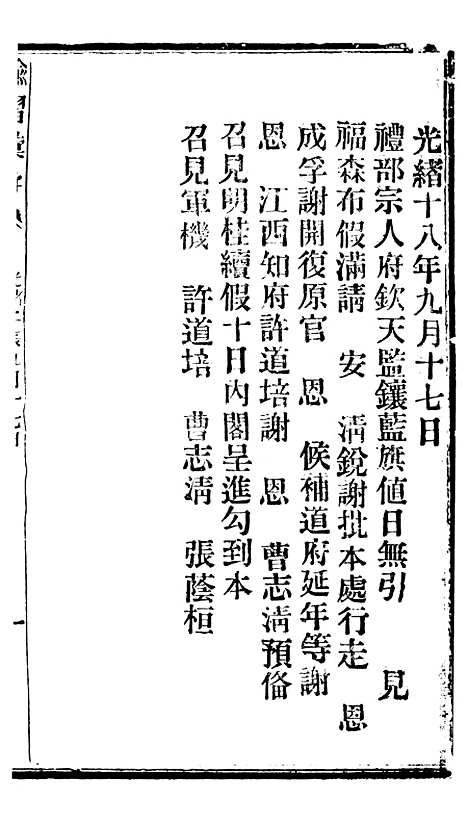 光緒十八年九月十七日
禮部宗人府欽天監鑲藍旗值日無引 見
福森布假滿請 安 清銳謝批本處行走 恩
成孚謝開復原官 恩 候補道府延年等謝
恩 江西知府許道培謝 恩 曹志清預備
召見明桂續假十日內閣呈進勾到本
召見軍機 許道培 曹志清 張蔭桓
一